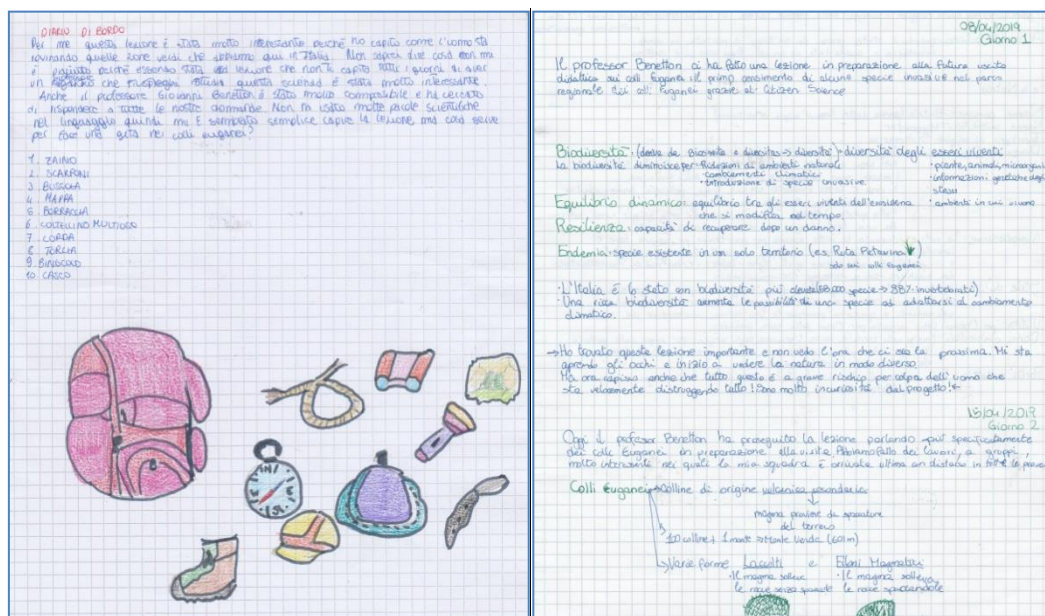 DIARIO DI BORDO
Per me questa lezione è stata molto interessante perché ho capito come l'uomo sta
rovinando quelle zone verdi che abbiamo qui in Italia. Non saprei dire cosa non ma
è piaciuto perché essendo stata una lezione che non ti capita tutti i giorni di aver
un che questa scienza è stata molto interessante.
Anche il professore Giovanni Benetton è stato molto comprensibile e ha cercato
di rispondere a tutte le nostre domande. Non ha usato molte parole scientifiche
nel linguaggio quindi mi è sembrato semplice capire la lezione, ma cosa serve
per fare una gita nei colli euganei?
1. ZAINO
2. SCARPONI
3. BUSSOLA
4. MAPPA
5. BORRACCIA
6. COLTELLINO MULTIUSO
7. CORDA
8. TORCIA
9. BINOCOLO
10. CASCO
08/04/2019
Giorno 1
Il professor Benetton ci ha fatto una lezione in preparazione alla futura uscita
didattica sui colli Euganei: il primo censimento di alcune specie invasive nel parco
regionale dei colli Euganei grazie al Citizen Science
Biodiversità: (deriva da Bios=vita e diversitas→ diversità) = diversità degli esseri viventi
La biodiversità diminuisce per: Riduzioni di ambienti naturali · piante, animali, microrganismi
· cambiamenti climatici · informazioni genetiche degli
· introduzione di specie invasive stessi
· ambienti in cui vivono
Equilibrio dinamico: equilibrio tra gli esseri viventi dell'ecosistema
che si modifica nel tempo.
Resilienza: capacità di recuperare dopo un danno.
Endemia: specie esistente in un solo territorio (es. Ruta Patavina)
solo sui colli Euganei
· L'Italia è lo stato con biodiversità più elevata (58.000 specie → 887. invertebrati)
· Una ricca biodiversità aumenta le possibilità di una specie ad adattarsi al cambiamento
climatico.
→ Ho trovato questa lezione importante e non vedo l'ora che ci sia la prossima. Mi sta
aprendo gli occhi e inizio a vedere la natura in modo diverso.
Ho ora capito anche che tutto questo è a grave rischio per colpa dell'uomo che
sta velocemente distruggendo tutto! Sono molto incuriosita dal progetto!
15/04/2019
Giorno 2
Oggi il professor Benetton ha proseguito la lezione parlando più specificatamente
dei colli Euganei in preparazione alla visita. Abbiamo fatto dei lavori, a gruppi,
molto interessante nei quali la mia squadra è arrivata ultima con distacco in tutte le prove
Colli Euganei → Colline di origine vulcanica secondaria
magma proviene da spaccature
del terreno
100 colline + 1 monte → Monte Venda (601m)
Varie forme Laccoliti e Filoni Magmatici
· Il magma solleva · Il magma solleva
le rocce senza spaccarle le rocce spaccandole